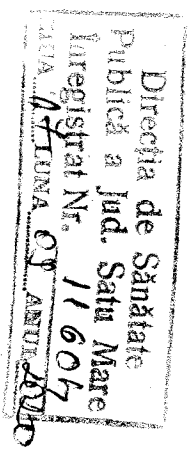 Direcția de Sănătate
Publică a Jud. Satu Mare
Înregistrat Nr. 11604
LUNA 09 ANUL